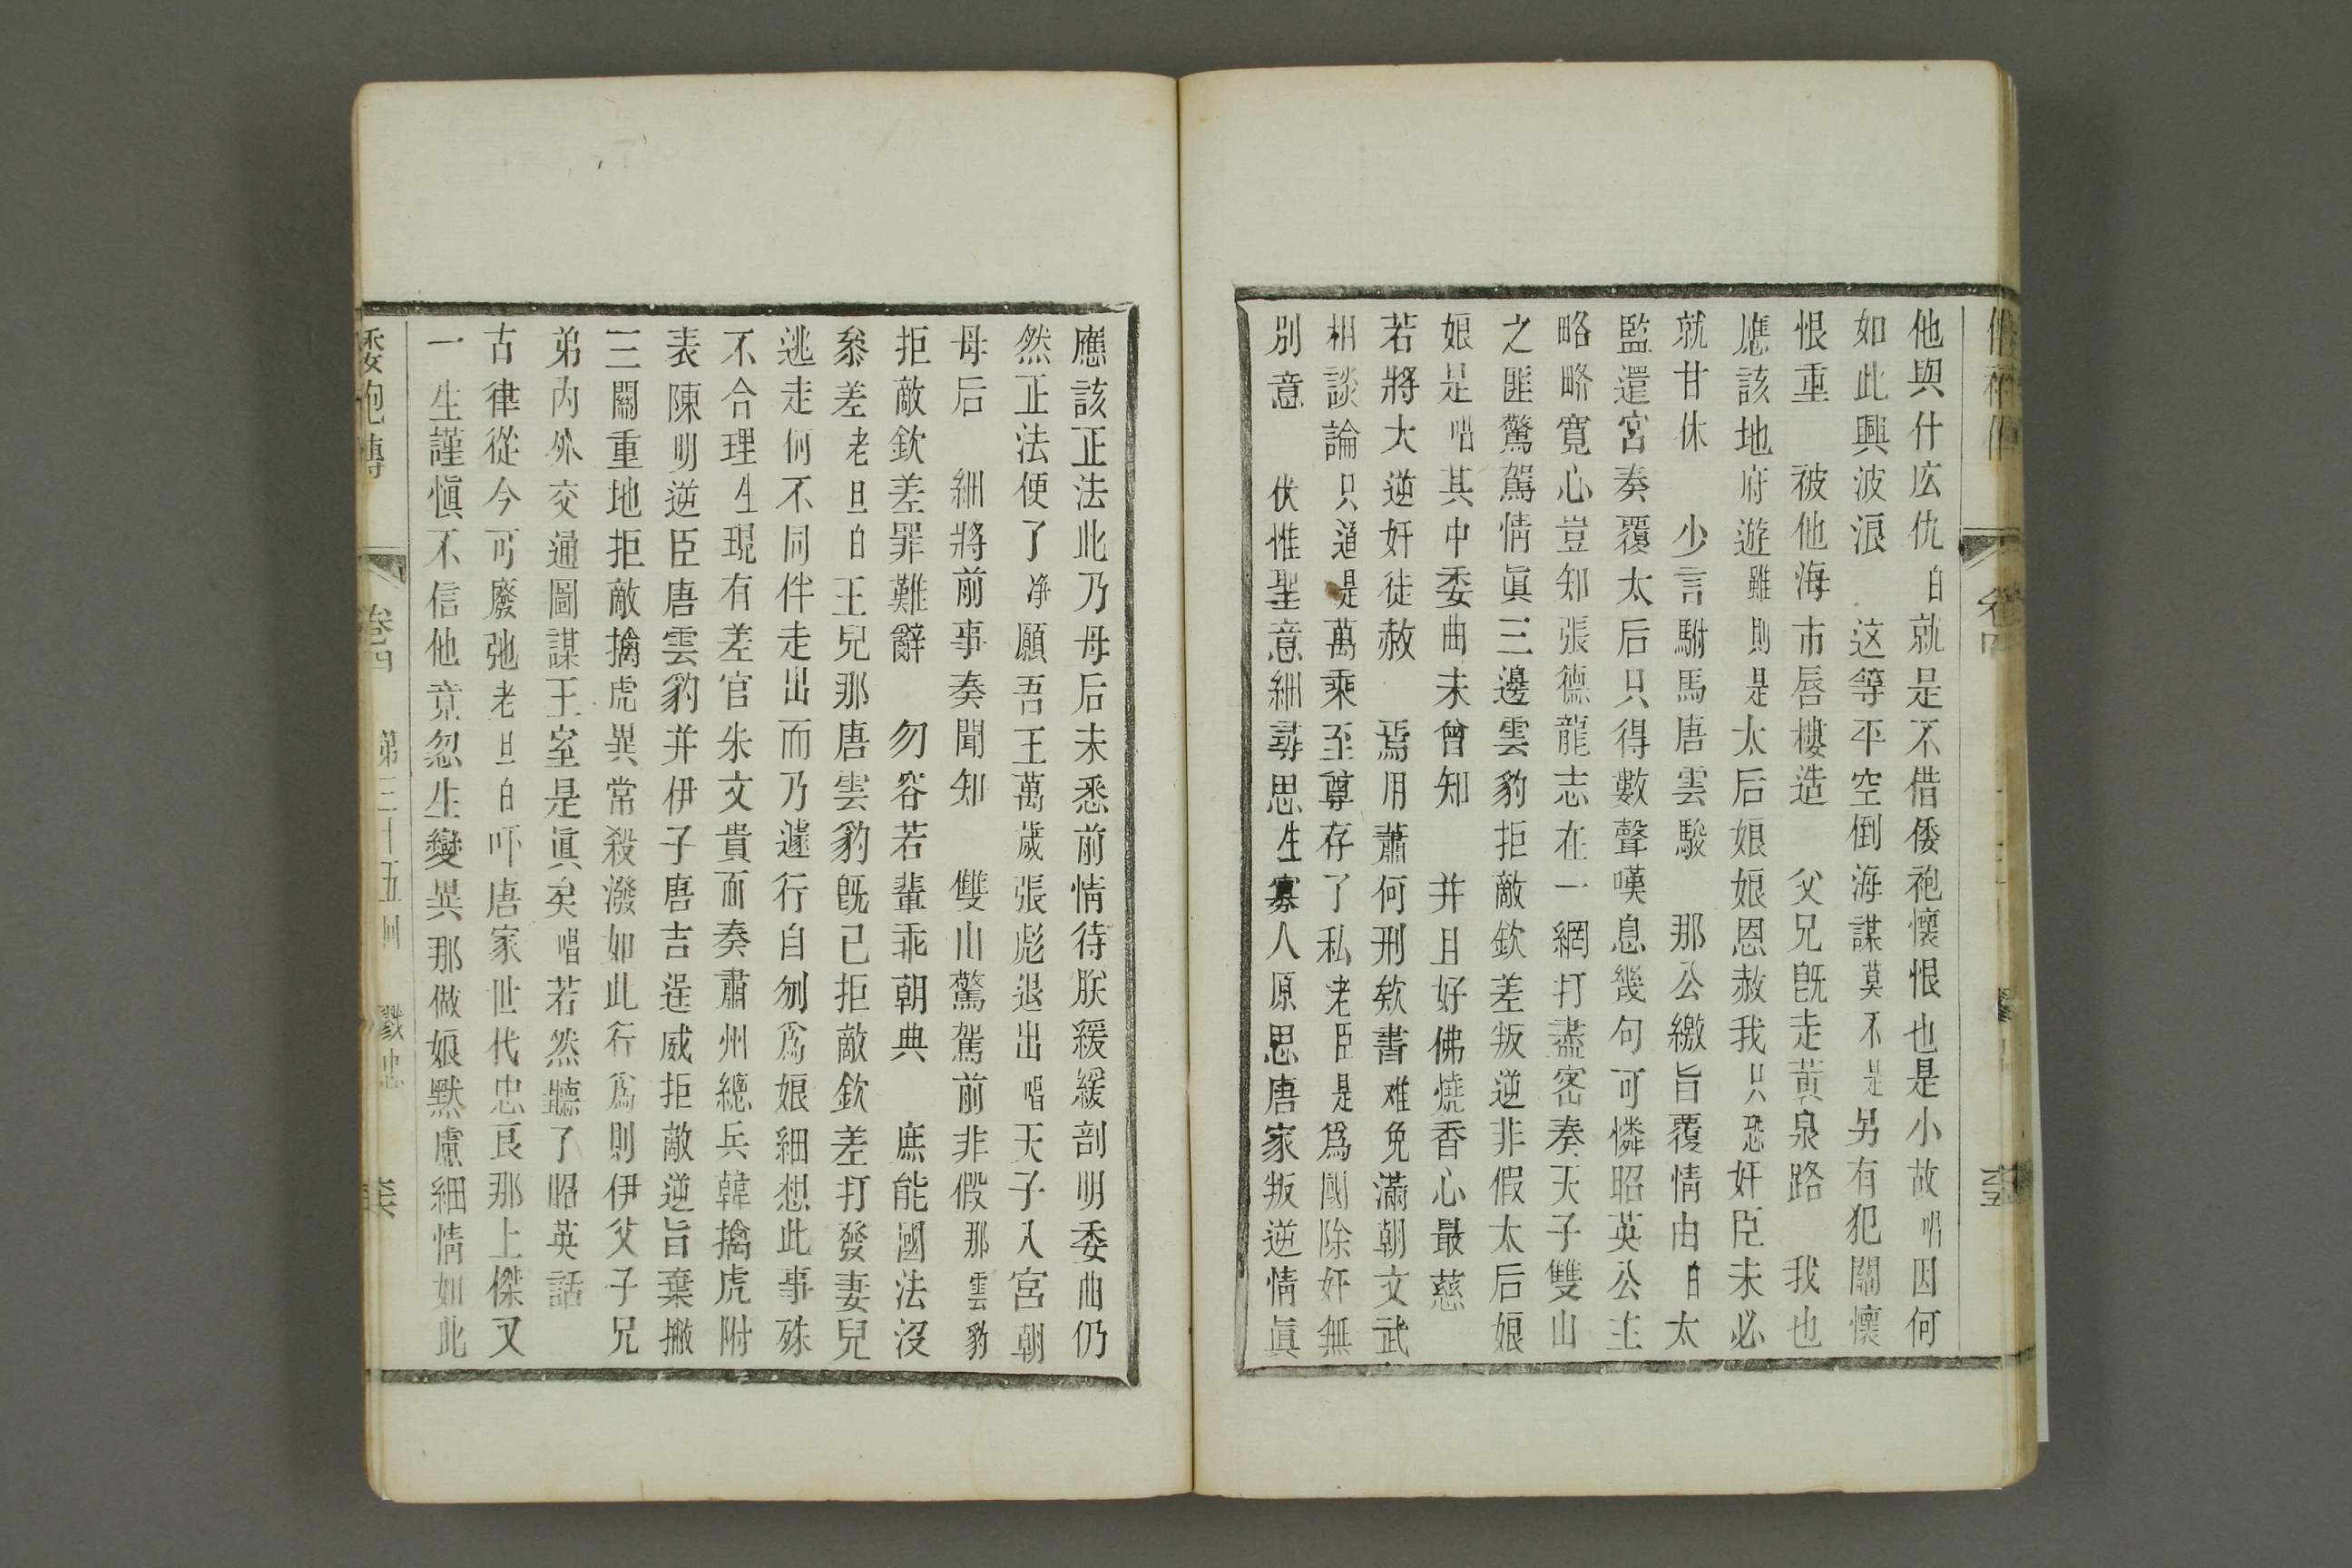 他與什庅仇白就是不借倭袍懷恨也是小故唱因何
如此興波浪 这等平空倒海謀莫不是另有犯關懷
恨重 被他海市唇樓造 父兄旣走黃泉路 我也
應該地府遊雖則是太后娘娘恩赦我只恐奸臣未必
就甘休 少言駙馬唐雲駿 那公繳旨覆情由白太
監還宮奏覆太后只得數聲嘆息幾句可憐昭英公主
略略寬心豈知張德龍志在一網打盡密奏天子雙山
之匪驚駕情眞三邊雲豹拒敵欽差叛逆非假太后娘
娘是唱其中委曲未曾知 并且好佛燒香心最慈
若將大逆奸徒赦 焉用蕭何刑欵書难免滿朝文武
相談論只道是萬乘至尊存了私老臣是爲國除奸無
別意 伏惟聖意細尋思生寡人原思唐家叛逆情眞
應該正法此乃母后未悉前情待朕緩緩剖明委曲仍
然正法便了净願吾王萬歲張彪退出唱天子入宮朝
母后 細將前事奏聞知 雙山驚駕前非假那雲豹
拒敵欽差罪難辭 勿容若輩乖朝典 庶能國法沒
叅差老旦白王兒那唐雲豹旣已拒敵欽差打發妻兒
逃走何不同伴走出而乃遽行自刎爲娘細想此事殊
不合理生現有差官朱文貴面奏肅州總兵韓擒虎附
表陳明逆臣唐雲豹并伊子唐吉逞威拒敵逆旨棄撇
三關重地拒敵擒虎異常殺潑如此行爲則伊父子兄
弟內外交通圖謀王室是眞矣唱若然聽了昭英話
古律從今可廢弛老旦白吓唐家世代忠良那上傑又
一生謹慎不信他竟忽生變異那做娘默慮細情如此
倭袍傳 卷四 第三十五囘 戮忠